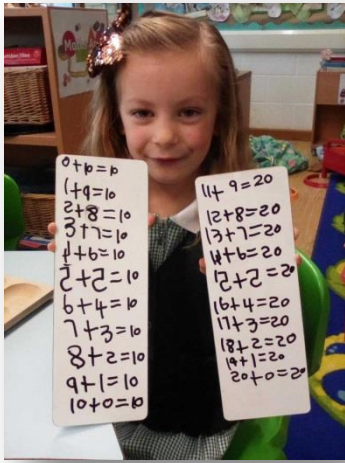 0+10=10
1+9=10
2+8=10
3+7=10
4+6=10
5+5=10
6+4=10
7+3=10
8+2=10
9+1=10
10+0=10
11+9=20
12+8=20
13+7=20
14+6=20
15+5=20
16+4=20
17+3=20
18+2=20
19+1=20
20+0=20